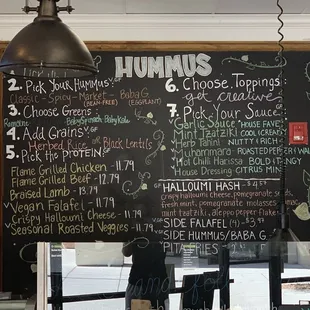 HUMMUS
2. Pick Your Hummus GF
Classic - Spicy - Market - Baba G.
(BEAN-FREE) (EGGPLANT)
3. Choose Greens:
Romaine Baby Spinach Baby Kale
4. Add Grains
Herbed Rice or Black Lentils
5. Pick His PROTEIN:
Flame Grilled Chicken - 11.79
Flame Grilled Beef - 12.79
Braised Lamb - 13.79
Vegan Falafel - 11.79
Crispy Halloumi Cheese - 11.79
Seasonal Roasted Veggies - 11.79
6. Choose Toppings:
get creative
7. Pick Your Sauce:
Garlic Sauce HOUSE FAVE
Mint Tzatziki COOL (CREAMY
Herb Tahini NUTTY RICH
Muhammara ROASTED PEPPER WALN
Hot Chili Harissa BOLD
House Dressing CITRUS MIN
HALLOUMI HASH
crispy halloumi cheese, pomegranate seeds,
fresh mint, pomegranate molasses,
mint tzatziki, aleppo pepper flakes
SIDE FALAFEL (4) $3.79
SIDE HUMMUS/BABA G.
PITA FRIES